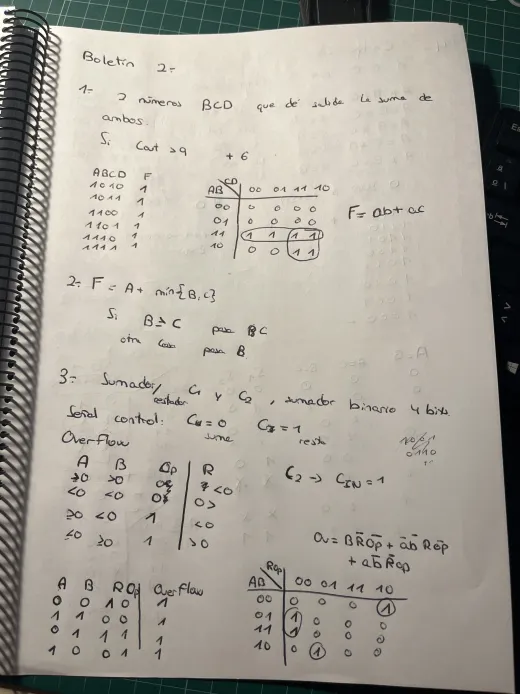 Boletín 2:-
1:- 2 números BCD que dé salida la suma de
ambos.
Si Cout >9 +6
ABCD F
1010 1
1011 1
1100 1
1101 1
1110 1
1111 1
CD
AB 00 01 11 10
00 0 0 0 0
01 0 0 0 0
11 1 1 1 1
10 0 0 1 1
F= ab+ ac
2:- F = A + min{B,C}
Si B≥C pasa C
otro caso pasa B
3:- Sumador/ C1 y C2, sumador binario 4 bits
restador
Señal control: =0 =1
suma resta
Overflow
A B Op R
≥0 ≥0 0 <0
<0 <0 0 0>
≥0 <0 1 <0
<0 ≥0 1 >0
C2 → CIN=1
0110
Ov = B R̄ Op̄ + ā b̄ R op̄
+ a b̄ R̄ op
A B R Op Overflow
0 0 1 0 1
1 1 0 0 1
0 1 1 1 1
1 0 0 1 1
ROp
AB 00 01 11 10
00 0 0 0 1
01 1 0 0 0
11 1 0 0 0
10 0 1 0 0